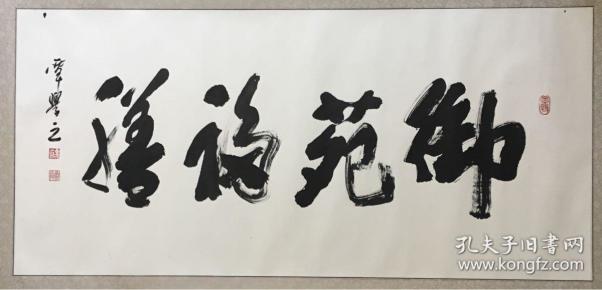 御苑福膳
孔夫子旧书网
www.kongfz.com